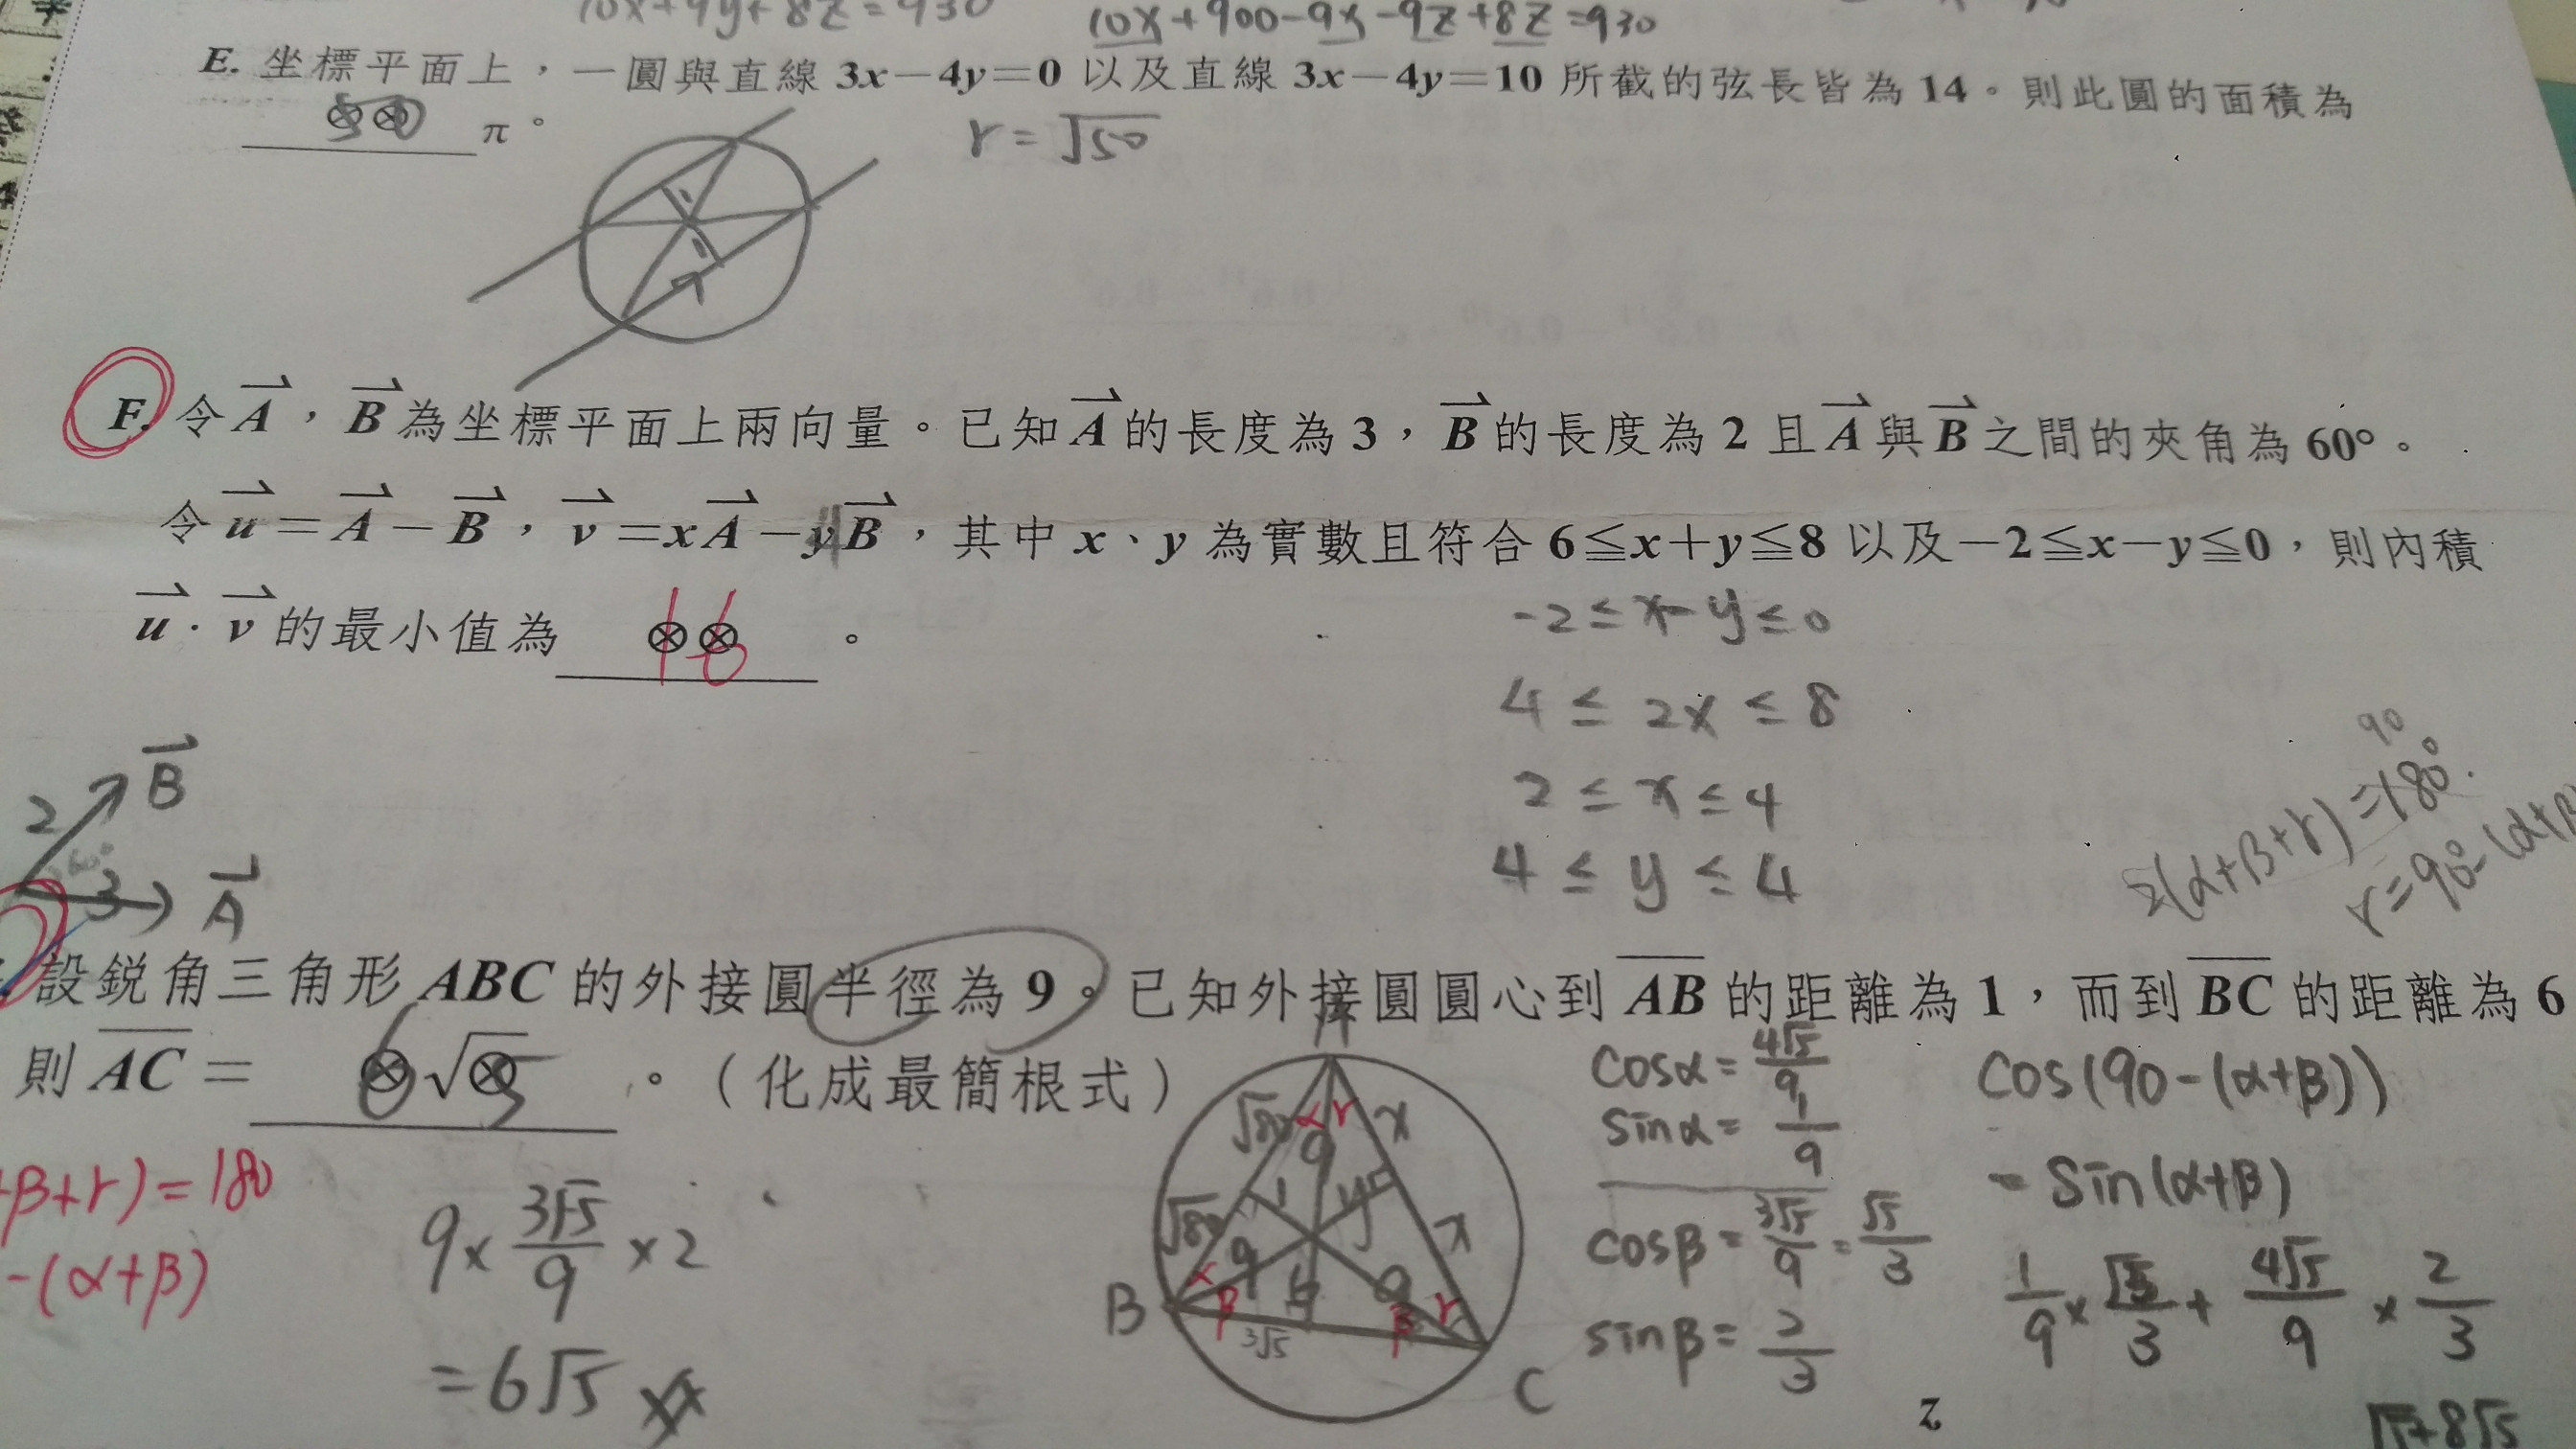 10x+9y+8z=930
10x+900-9x-9z+8z=930
E. 坐標平面上，一圓與直線 3x－4y＝0 以及直線 3x－4y＝10 所截的弦長皆為 14。則此圓的面積為
50 π。
r=√50
F. 令 A⃗，B⃗ 為坐標平面上兩向量。已知 A⃗ 的長度為 3，B⃗ 的長度為 2 且 A⃗ 與 B⃗ 之間的夾角為 60°。
令 u⃗＝A⃗－B⃗，v⃗＝xA⃗－yB⃗，其中 x、y 為實數且符合 6≦x＋y≦8 以及－2≦x－y≦0，則內積
u⃗．v⃗ 的最小值為 ⊗⊗ 。
16
-2≤x-y≤0
4≤2x≤8
2≤x≤4
4≤y≤4
B⃗
2
60°
3
A⃗
90
2(α+β+r)=180°
r=90°-(α+β
設銳角三角形 ABC 的外接圓半徑為 9。已知外接圓圓心到 AB 的距離為 1，而到 BC 的距離為 6
則 AC＝ ⊗√⊗ 。（化成最簡根式）
6 5
β+r)=180
-(α+β)
9×3√5/9×2
=6√5
A
√80 α r x
9
√80 1 y x
α 9 6 9 r
B β 3√5 β
C
cosα=4√5/9
sinα=1/9
cosβ=3√5/9=√5/3
sinβ=2/3
cos(90-(α+β))
=sin(α+β)
1/9×√5/3+4√5/9×2/3
√5+8√5
z